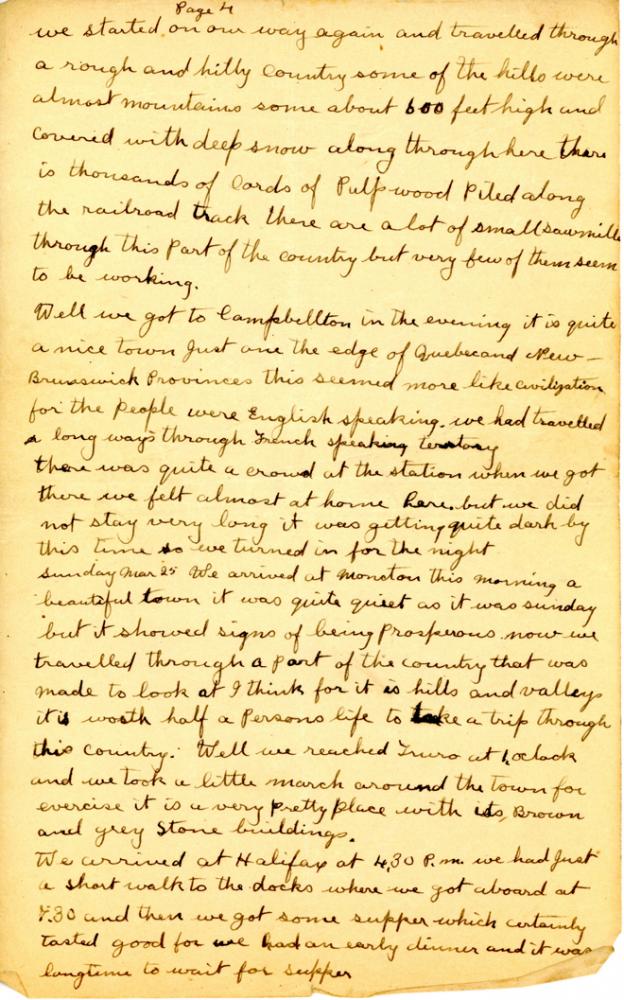 Page 4
we started on our way again and travelled through
a rough and hilly country some of the hills were
almost mountains some about 600 feet high and
covered with deep snow along through here there
is thousands of Cords of Pulp wood Piled along
the railroad track there are a lot of small sawmills
through this Part of the country but very few of them seem
to be working.
Well we got to Campbellton in the evening it is quite
a nice town Just one the edge of Quebec and New-
Brunswick Provinces this seemed more like civilization
for the People were English speaking. we had travelled
a long ways through French speaking
there was quite a crowd at the station when we got
there we felt almost at home here. but we did
not stay very long it was getting quite dark by
this time so we turned in for the night
Sunday Mar 25 We arrived at Moncton this morning a
beautiful town it was quite quiet as it was sunday
but it showed signs of being Prosperous now we
travelled through a Part of the country that was
made to look at I think for it is hills and valleys
it is worth half a Persons life to take a trip through
this country. Well we reached Truro at 1,oclock
and we took a little march around the town for
exercise it is a very Pretty Place with its, Brown
and grey Stone buildings.
We arrived at Halifax at 4,30 P.m. we had Just
a short walk to the docks where we got aboard at
7.30 and then we got some supper which certainly
tasted good for we had an early dinner and it was
longtime to wait for supper